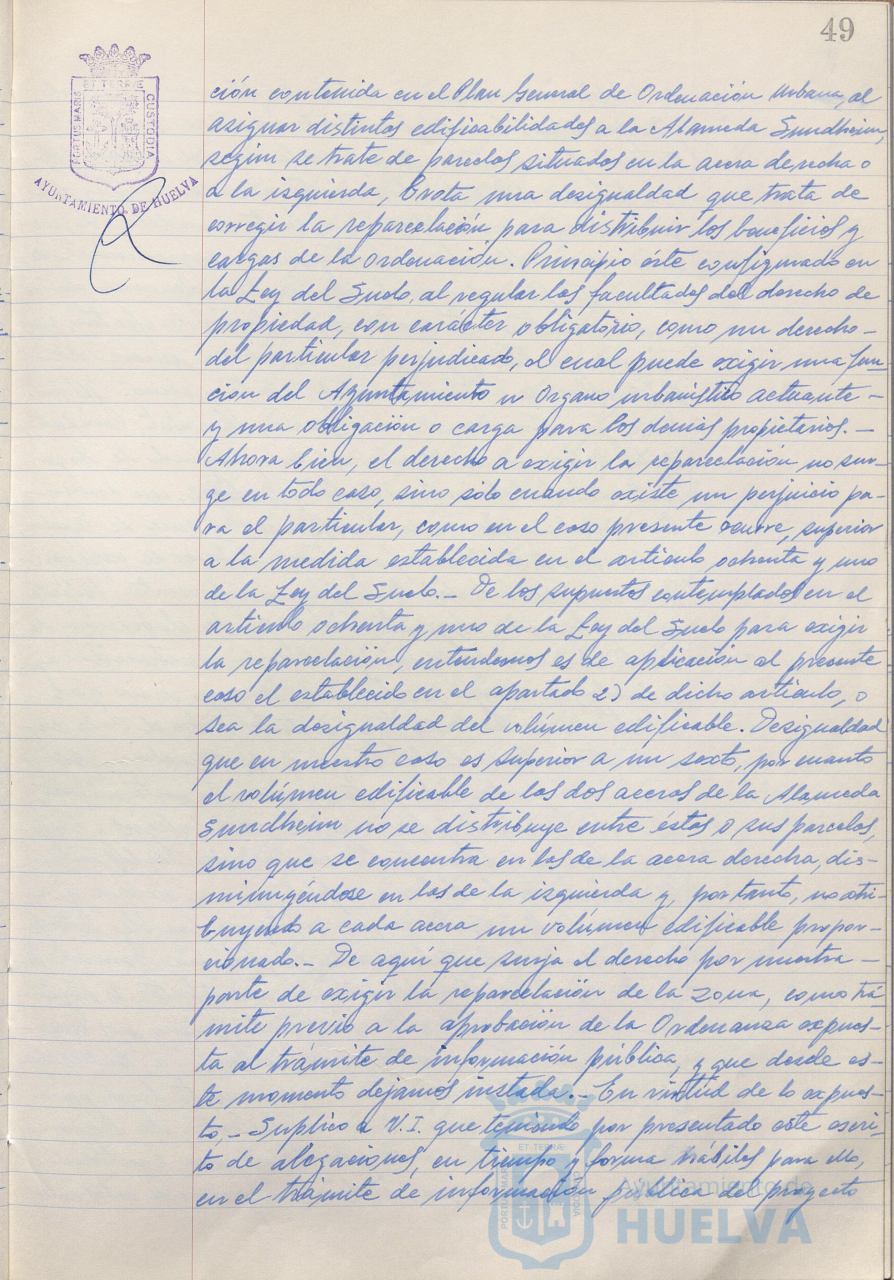 49
PORTUS MARIS
ET TERRÆ
CUSTODIA
AYUNTAMIENTO DE HUELVA
ción contenida en el Plan General de Ordenación Urbana, al
asignar distintas edificabilidades a la Alameda Sundheim,
según se trate de parcelas situadas en la acera derecha o
a la izquierda, brota una desigualdad que trata de
corregir la reparcelación para distribuir los beneficios y
cargas de la ordenación. Principio éste configurado en
la Ley del Suelo, al regular las facultades del derecho de
propiedad, con carácter obligatorio, como un derecho-
del particular perjudicado, el cual puede exigir una fun-
ción del Ayuntamiento u Organo urbanístico actuante-
y una obligación o carga para los demás propietarios.-
Ahora bien, el derecho a exigir la reparcelación no sur-
ge en todo caso, sino sólo cuando existe un perjuicio pa-
ra el particular, como en el caso presente ocurre, superior
a la medida establecida en el artículo ochenta y uno
de la Ley del Suelo.- De los supuestos contemplados en el
artículo ochenta y uno de la Ley del Suelo para exigir
la reparcelación, entendemos es de aplicación al presente
caso el establecido en el apartado 2) de dicho artículo, o
sea la desigualdad del volúmen edificable. Desigualdad
que en nuestro caso es superior a un sexto, por cuanto
el volúmen edificable de las dos aceras de la Alameda
Sundheim no se distribuye entre éstas o sus parcelas,
sino que se concentra en las de la acera derecha, dis-
minuyéndose en las de la izquierda y, por tanto, no atri-
buyendo a cada acera un volúmen edificable propor-
cionado.- De aquí que surja el derecho por nuestra -
parte de exigir la reparcelación de la zona, como trá-
mite previo a la aprobación de la Ordenanza expues-
ta al trámite de información pública, y que desde es-
te momento dejamos instada.- En virtud de lo expues-
to,- Suplico a V.I. que teniendo por presentado este escri-
to de alegaciones, en tiempo y forma hábiles para ello,
en el trámite de información pública del proyecto
PORTUS MARIS
ET TERRÆ
CUSTODIA
Ayuntamiento de
HUELVA